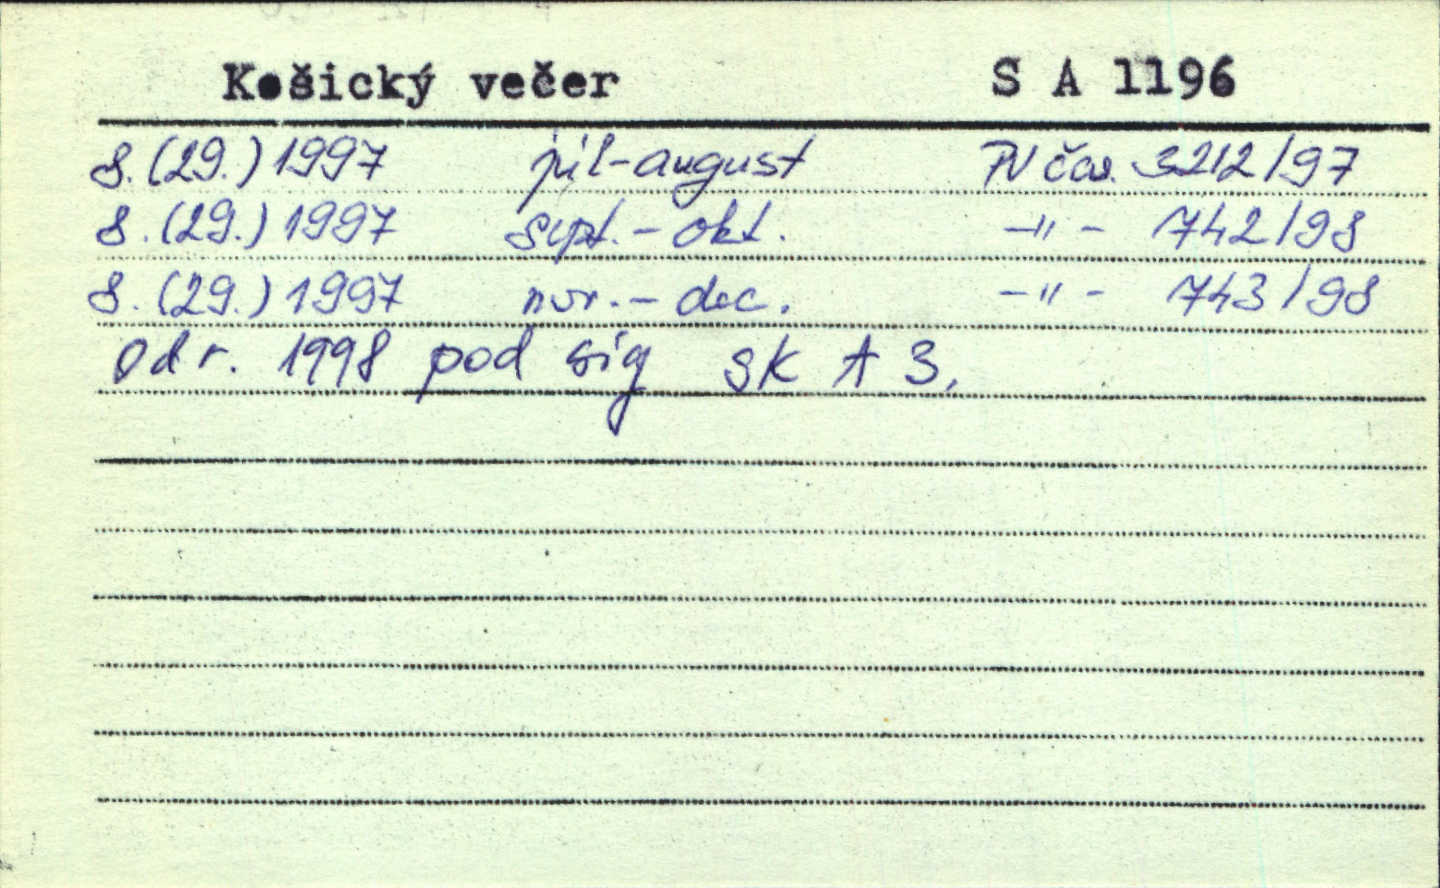 Košický večer S A 1196
8. (29.) 1997 júl-august PV čas. 3212/97
8. (29.) 1997 sept. - okt. -"- 742/98
8. (29.) 1997 nov. - dec. -"- 743/98
Od r. 1998 pod sig SK A 3.